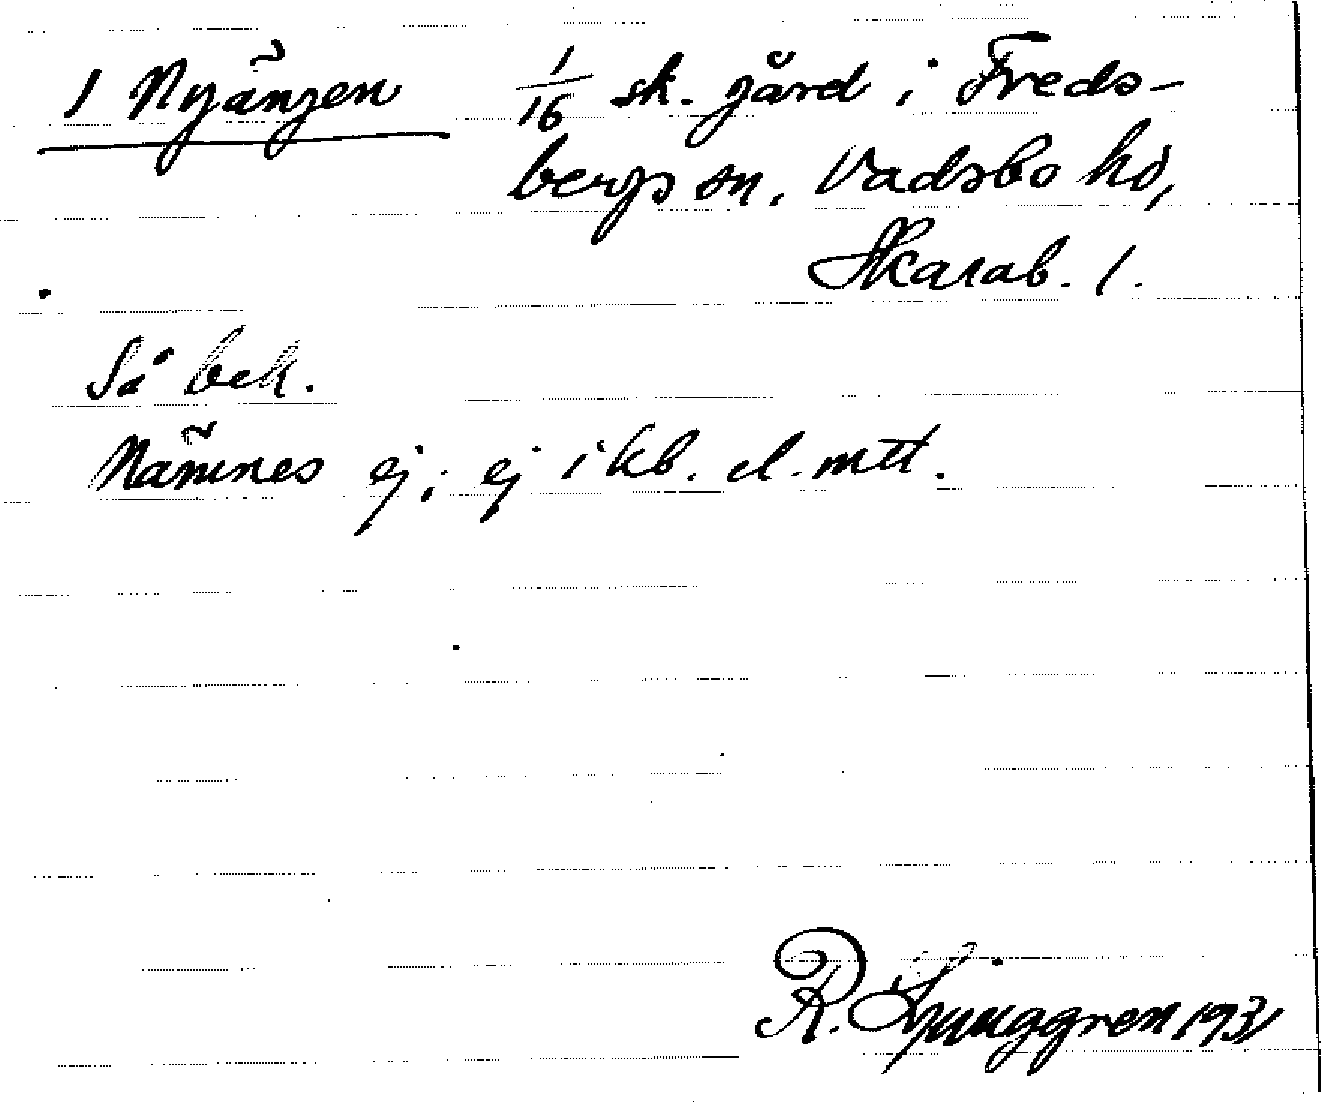 1 Nyängen 1/16 sk. gård i Freds-
bergs sn, Vadsbo hd,
Skarab. l.
Så bek.
Nämnes ej; ej i kb. el. mtl.
R. Ljunggren 1931